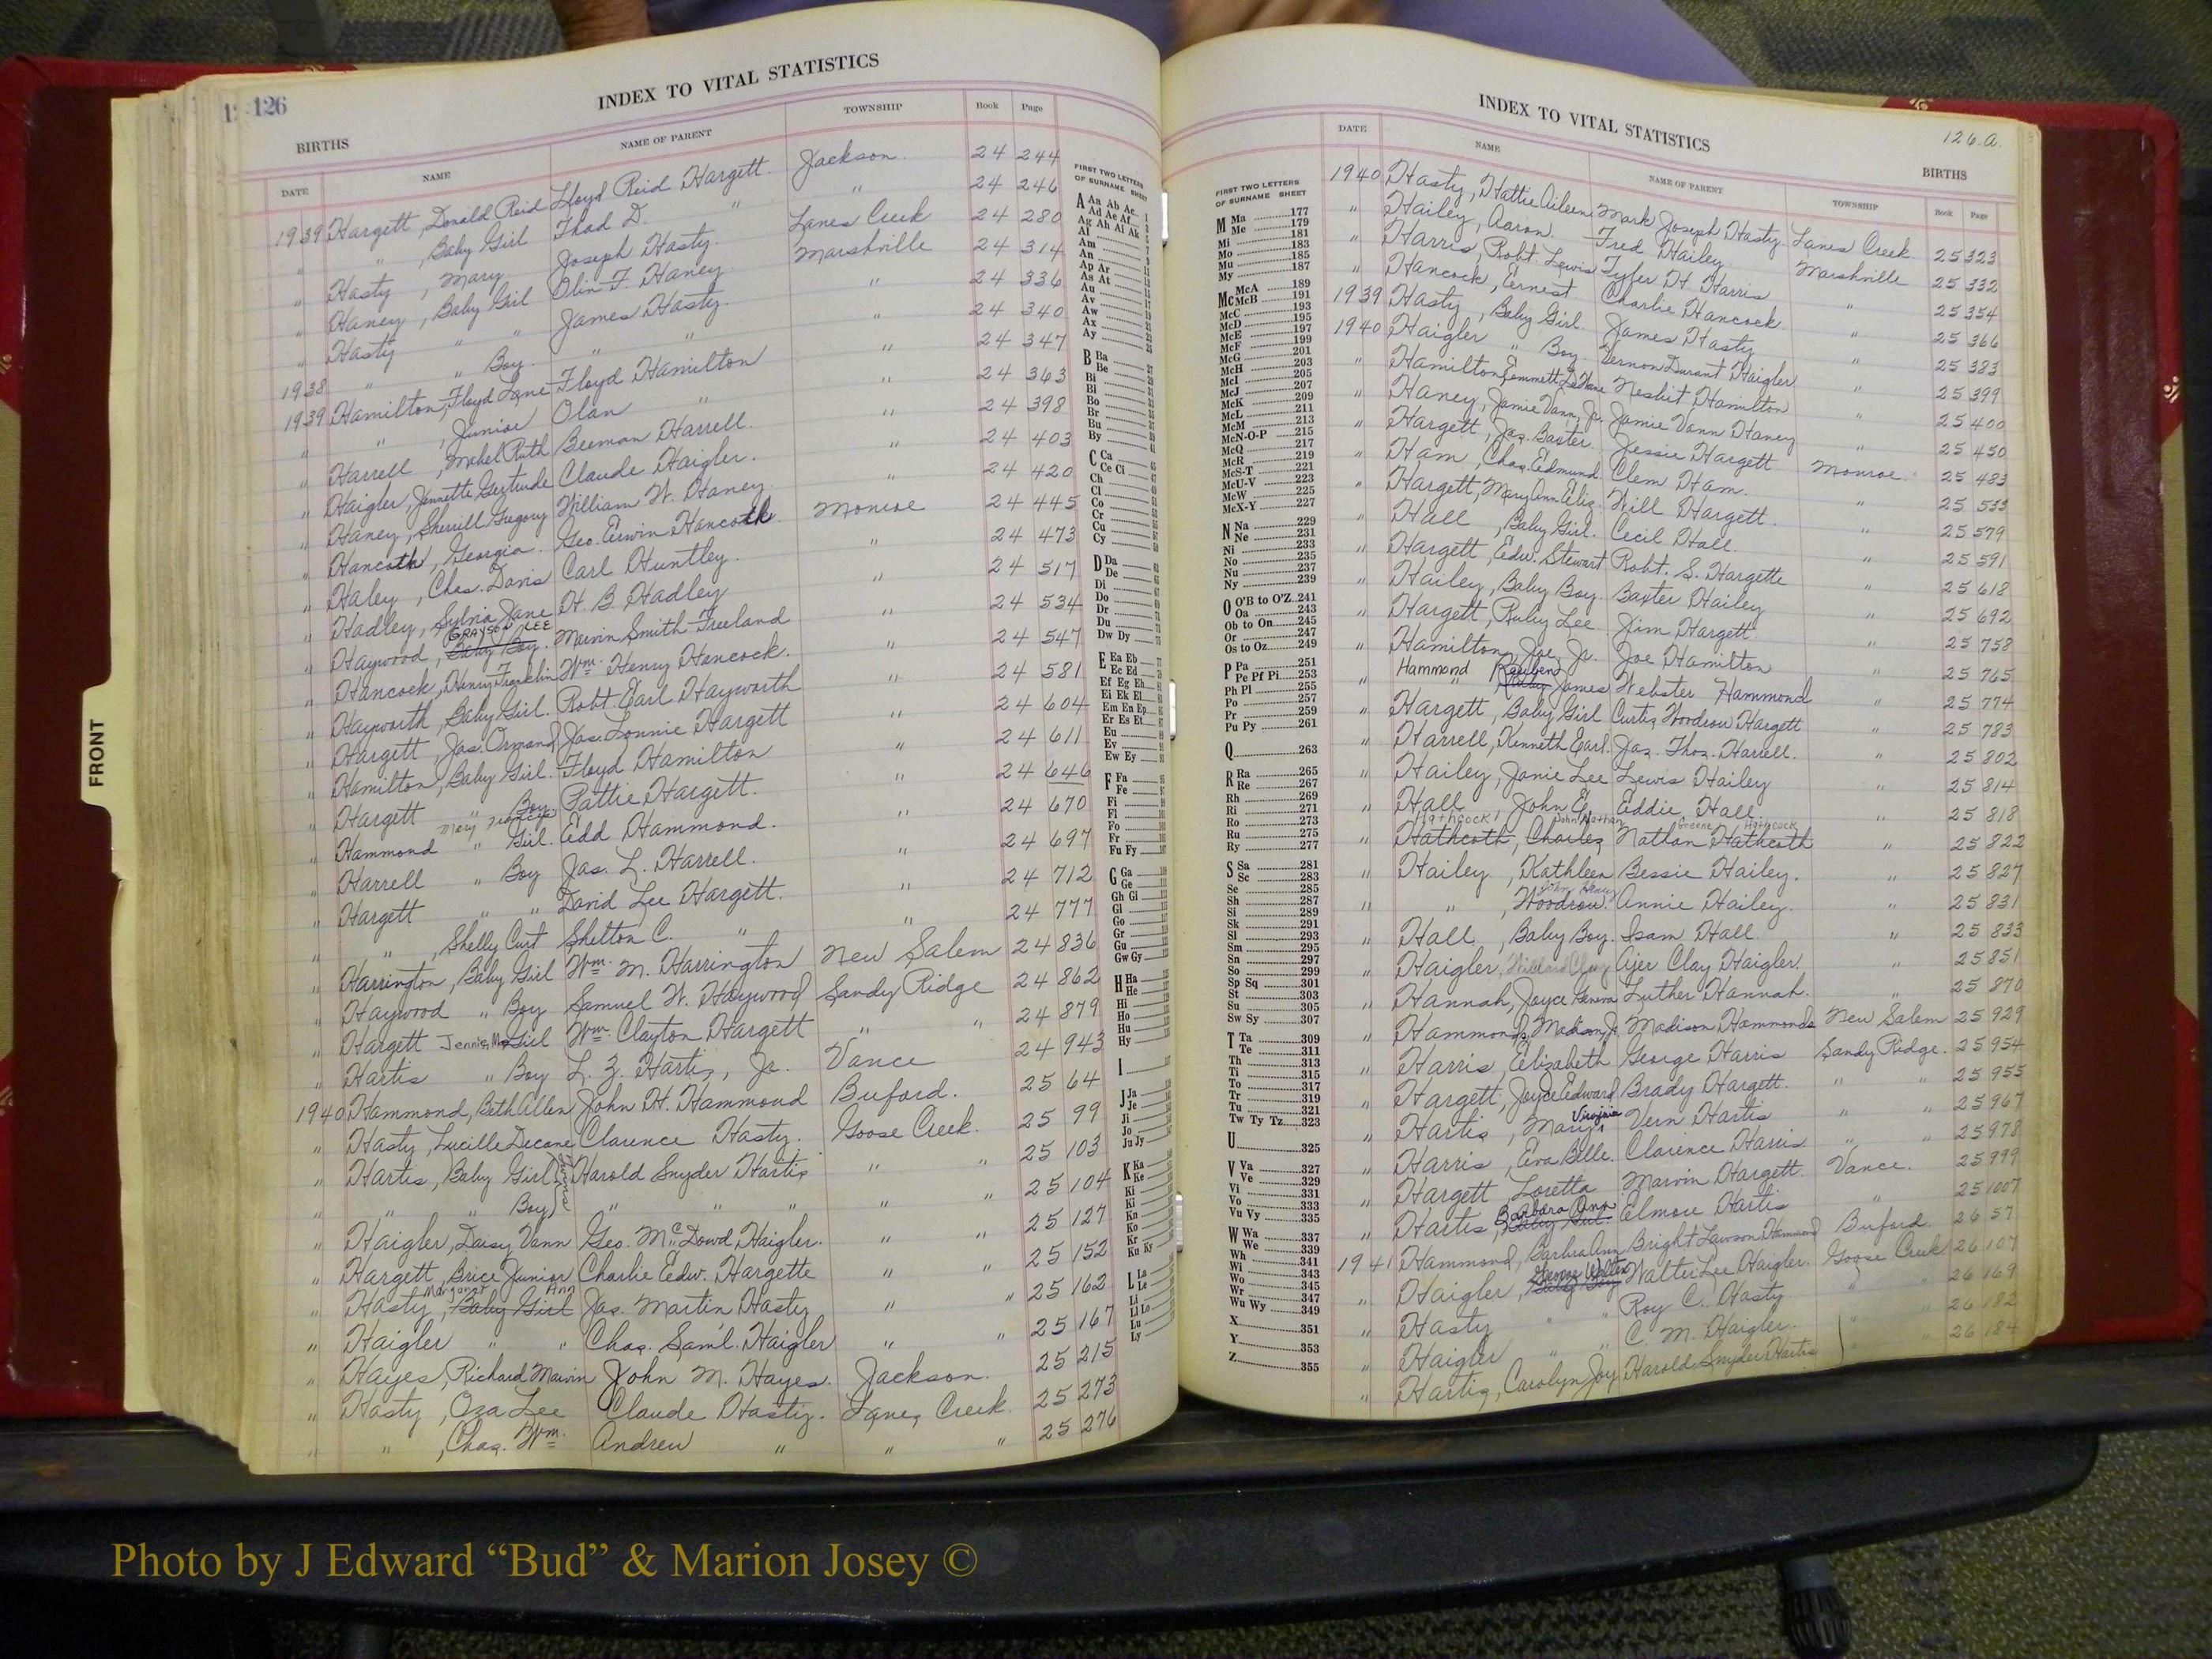 126
INDEX TO VITAL STATISTICS
BIRTHS
DATE NAME NAME OF PARENT TOWNSHIP Book Page
1939 Hargett, Donald Reid Lloyd Reid Hargett. Jackson. 24 244
" " , Baby Girl Thad D. " " 24 246
" Hasty, Mary. Joseph Hasty. Lanes Creek 24 280
" Haney, Baby Girl Olin F. Haney. Marshville 24 314
" Hasty " " James Hasty. " 24 336
1938 " " Boy. " " " 24 340
1939 Hamilton, Floyd Lane Floyd Hamilton " 24 347
" " , Junior Olan " " 24 363
" Harrell, Mabel Ruth Beeman Harrell. " 24 398
" Haigler, Jennette Gertrude Claude Haigler. 24 403
" Haney, Sherrill Gregory William W. Haney. 24 420
" Hancoth, Georgia. Geo. Erwin Hancoth Monroe 24 445
" Haley, Chas. Davis Carl Huntley. " 24 473
" Hadley, Sylvia Jane H. B. Hadley " 24 517
" Haywood, Baby Boy. GRAYSON LEE Marvin Smith Treeland " 24 534
" Hancock, Henry Franklin Wm. Henry Hancock. " 24 547
" Hayworth, Baby Girl. Robt. Earl Hayworth " 24 581
" Hargett, Jas. Ormand Jas. Lonnie Hargett " 24 604
" Hamilton, Baby Girl. Floyd Hamilton " 24 611
" Hargett " Boy Pattie Hargett. " 24 646
" Hammond Mary Frances " Girl. Edd Hammond. " 24 670
" Harrell " Boy Jas. L. Harrell. " 24 697
" Hargett " " David Lee Hargett. " 24 712
" " , Shelly Curt Shelton C. " " 24 777
" Harrington, Baby Girl Wm. M. Harrington New Salem 24 836
" Haywood " Boy Samuel W. Haywood Sandy Ridge 24 862
" Hargett Jennie Mae Girl Wm. Clayton Hargett " " 24 879
" Hartis " Boy L. Z. Hartis, Jr. Vance 24 943
1940 Hammond, Beth Allen John H. Hammond Buford. 25 64
" Hasty, Lucille Decane Clarence Hasty. Goose Creek. 25 99
" Hartis, Baby Girl Twins Harold Snyder Hartis " " 25 103
" " " Boy " " " " " " 25 104
" Haigler, Daisy Vann Geo. McDowd Haigler. " " 25 127
" Hargett, Brice Junior Charlie Edw. Hargette " " 25 152
" Hasty, Baby Girl Margaret Ann Jas. Martin Hasty " " 25 162
" Haigler " " Chas. Saml. Haigler " " 25 167
" Hayes, Richard Marvin John M. Hayes. Jackson. 25 215
" Hasty, Oza Lee Claude Hasty. Lanes Creek 25 273
" " , Chas. Wm. Andrew " " " 25 276
FRONT
FIRST TWO LETTERS
OF SURNAME SHEET
A Aa Ab Ac
Ad Ae Af
Ag Ah Ai Ak
Al
Am
An
Ap Ar
As At
Au
Av
Aw
Ax
Ay
B Ba
Be
Bi
Bl
Bo
Br
Bu
By
C Ca
Ce Ci
Ch
Cl
Co
Cr
Cu
Cy
D Da
De
Di
Do
Dr
Du
Dw Dy
E Ea Eb
Ec Ed
Ef Eg Eh
Ei Ek El
Em En Ep
Er Es Et
Eu
Ev
Ew Ey
F Fa
Fe
Fi
Fl
Fo
Fr
Fu Fy
G Ga
Ge
Gh Gi
Gl
Go
Gr
Gu
Gw Gy
H Ha
He
Hi
Ho
Hu
Hy
I
J Ja
Je
Ji
Jo
Ju Jy
K Ka
Ke
Ki
Kn
Ko
Kr
Ku Ky
L La
Le
Li
Ll Lo
Lu
Ly
INDEX TO VITAL STATISTICS
126.a.
BIRTHS
DATE NAME NAME OF PARENT TOWNSHIP Book Page
FIRST TWO LETTERS
OF SURNAME SHEET
M Ma 177
Me 179
Mi 181
Mo 183
Mu 185
My 187
Mc McA 189
McB 191
McC 193
McD 195
McE 197
McF 199
McG 201
McH 203
McI 205
McJ 207
McK 209
McL 211
McM 213
McN-O-P 215
McQ 217
McR 219
McS-T 221
McU-V 223
McW 225
McX-Y 227
N Na 229
Ne 231
Ni 233
No 235
Nu 237
Ny 239
O O'B to O'Z 241
Oa 243
Ob to On 245
Or 247
Os to Oz 249
P Pa 251
Pe Pf Pi 253
Ph Pl 255
Po 257
Pr 259
Pu Py 261
Q 263
R Ra 265
Re 267
Rh 269
Ri 271
Ro 273
Ru 275
Ry 277
S Sa 281
Sc 283
Se 285
Sh 287
Si 289
Sk 291
Sl 293
Sm 295
Sn 297
So 299
Sp Sq 301
St 303
Su 305
Sw Sy 307
T Ta 309
Te 311
Th 313
Ti 315
To 317
Tr 319
Tu 321
Tw Ty Tz 323
U 325
V Va 327
Ve 329
Vi 331
Vo 333
Vu Vy 335
W Wa 337
We 339
Wh 341
Wi 343
Wo 345
Wr 347
Wu Wy 349
X 351
Y 353
Z 355
1940 Hasty, Hattie Aileen Mark Joseph Hasty. Lanes Creek. 25 323
" Hailey, Aaron. Fred Hailey Marshville 25 332
" Harris, Robt. Lewis Tyler H. Harris " 25 354
" Hancock, Ernest Charlie Hancock " 25 366
1939 Hasty, Baby Girl. James Hasty " 25 383
1940 Haigler " Boy. Vernon Durant Haigler " 25 399
" Hamilton, Emmett Nesbit Hamilton " 25 400
" Haney, Jamie Vann, Jr. Jamie Vann Haney 25 450
" Hargett, Jas. Baxter. Jessie Hargett Monroe 25 483
" Ham, Chas. Edmund. Clem Ham. " 25 533
" Hargett, Mary Ann Eliz. Will Hargett. " 25 579
" Hall, Baby Girl. Cecil Hall. " 25 591
" Hargett, Edw. Stewart Robt. S. Hargette " 25 618
" Hailey, Baby Boy. Baxter Hailey " 25 692
" Hargett, Ruby Lee. Jim Hargett. " 25 758
" Hamilton, Joe, Jr. Joe Hamilton " 25 765
" Hammond Reuben James Webster Hammond " 25 774
" Hargett, Baby Girl Curtis Woodrow Hargett 25 783
" Harrell, Kenneth Earl. Jas. Thos. Harrell. " 25 802
" Hailey, Janie Lee Lewis Hailey " 25 814
" Hall John E. Eddie Hall " 25 818
" Hathcoth, Charles Hathcock John Nathan Nathan Hathcoth Greene Hathcock " 25 822
" Hailey, Kathleen Bessie Hailey. " 25 827
" " , Woodrow. John Henry Annie Hailey. " 25 831
" Hall, Baby Boy. Isam Hall. " 25 833
" Haigler, Willard Clay Ajer Clay Haigler. " 25 851
" Hannah, Joyce Geneva Luther Hannah. " 25 870
" Hammonds, Madison, Jr. Madison Hammonds New Salem 25 929
" Harris, Elizabeth George Harris Sandy Ridge. 25 954
" Hargett, Joyce Edward Brady Hargett. " " 25 955
" Hartis, Mary Virginia Vern Hartis " " 25 967
" Harris, Eva Belle. Clarence Harris " " 25 978
" Hargett, Loretta Marvin Hargett. Vance. 25 999
" Hartis, Baby Girl. Barbara Ann Elmore Hartis " 25 1007
1941 Hammond, Barbra Ann Bright Lawson Hammond Buford. 26 57
" Haigler, Baby Boy George Walter Walter Lee Haigler. Goose Creek 26 107
" Hasty " " Roy C. Hasty " " 26 169
" Haigler " " C. M. Haigler. " " 26 182
" Hartis, Carolyn Joy Harold Snyder Hartis " 26 184
Photo by J Edward “Bud” & Marion Josey ©